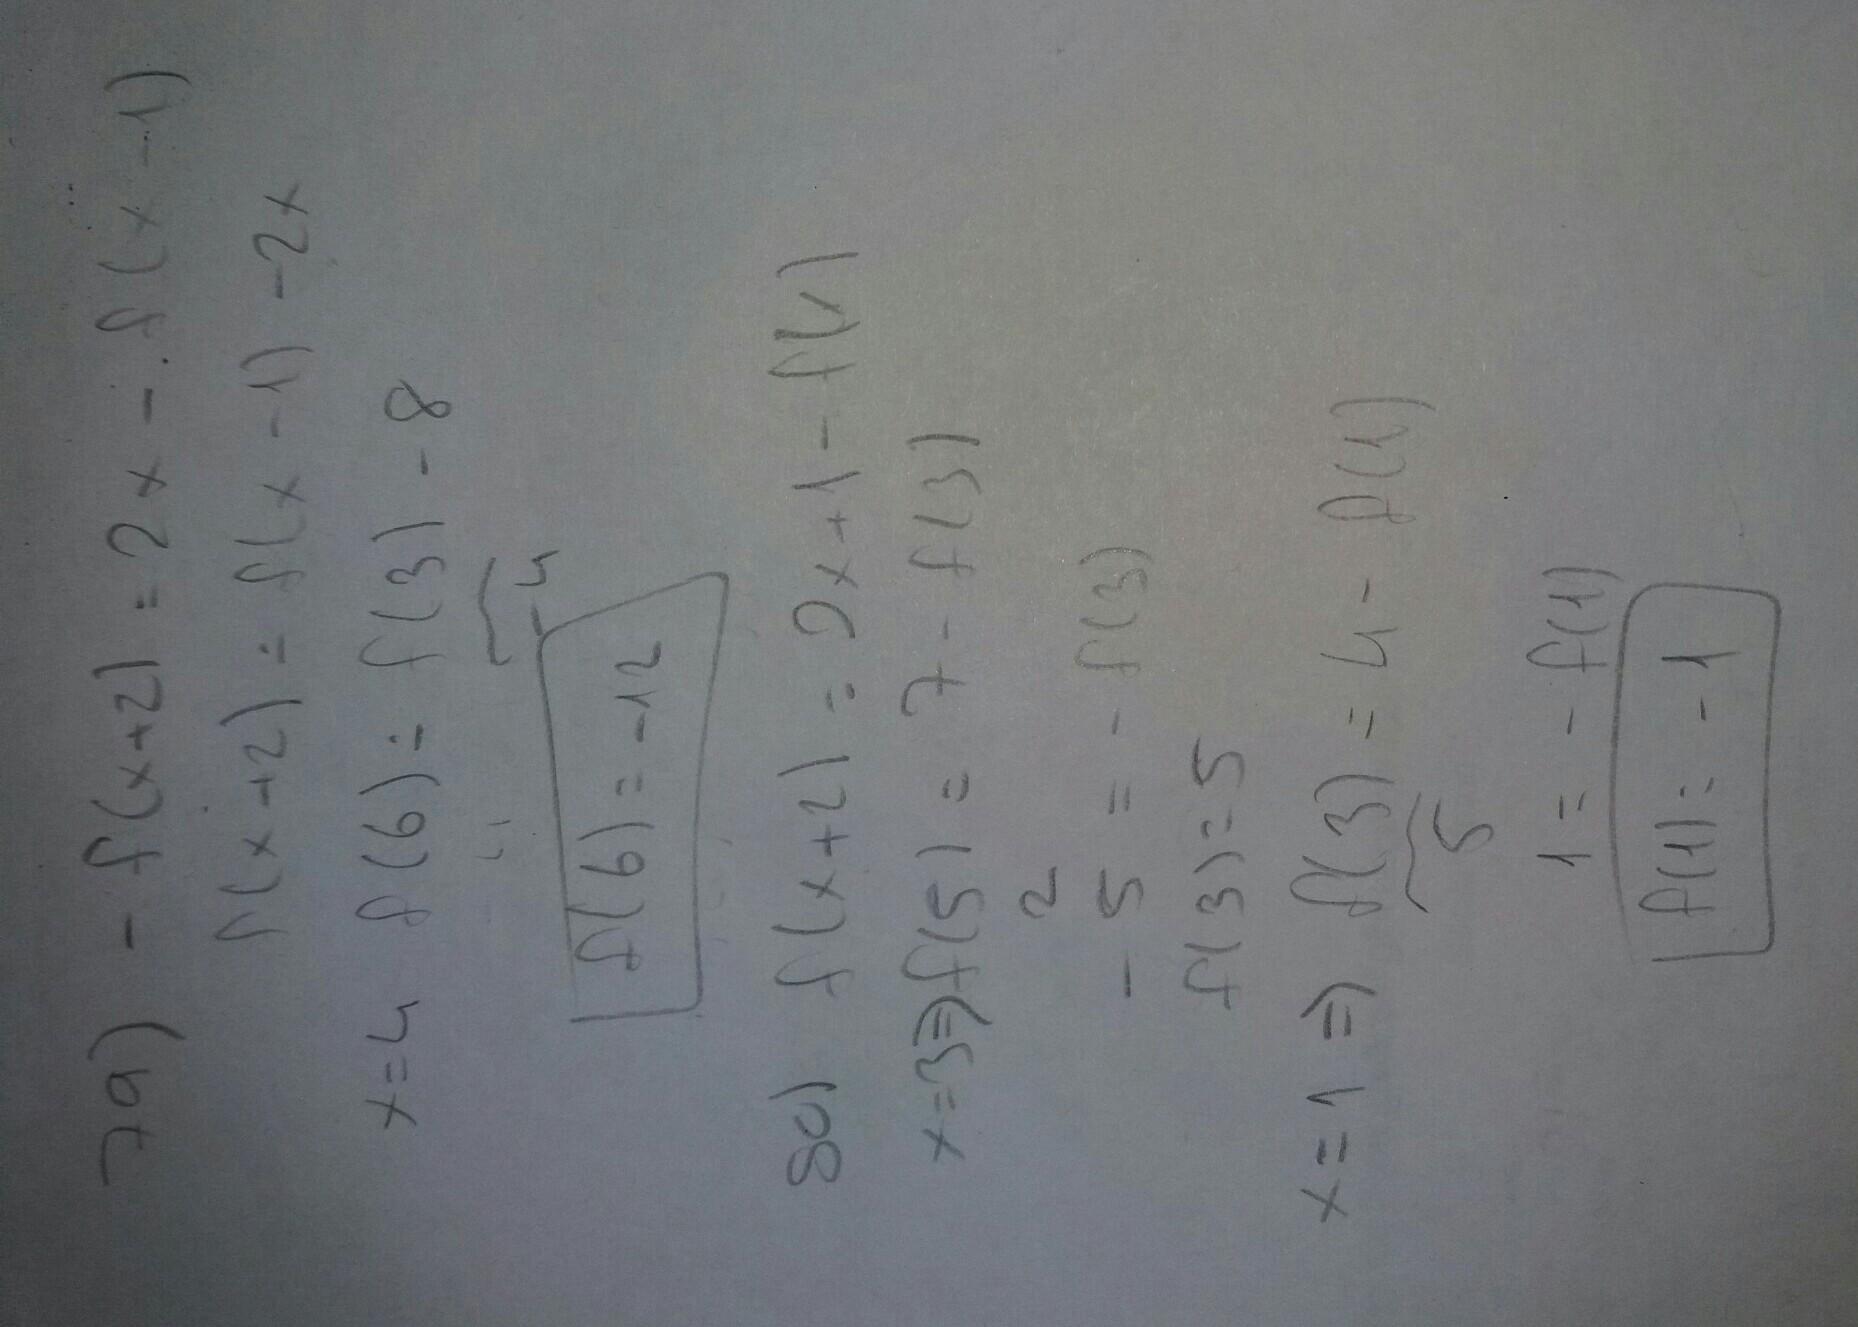 79) - f(x+2) = 2x - f(x-1)
f(x+2) = f(x-1) - 2x
x=4 f(6) = f(3) - 8
-4
f(6) = -12
80) f(x+2) = 2x+1 - f(x)
x=3 => f(5) = 7 - f(3)
2
-5 = - f(3)
f(3) = 5
x=1 => f(3) = 4 - f(1)
5
1 = - f(1)
f(1) = -1